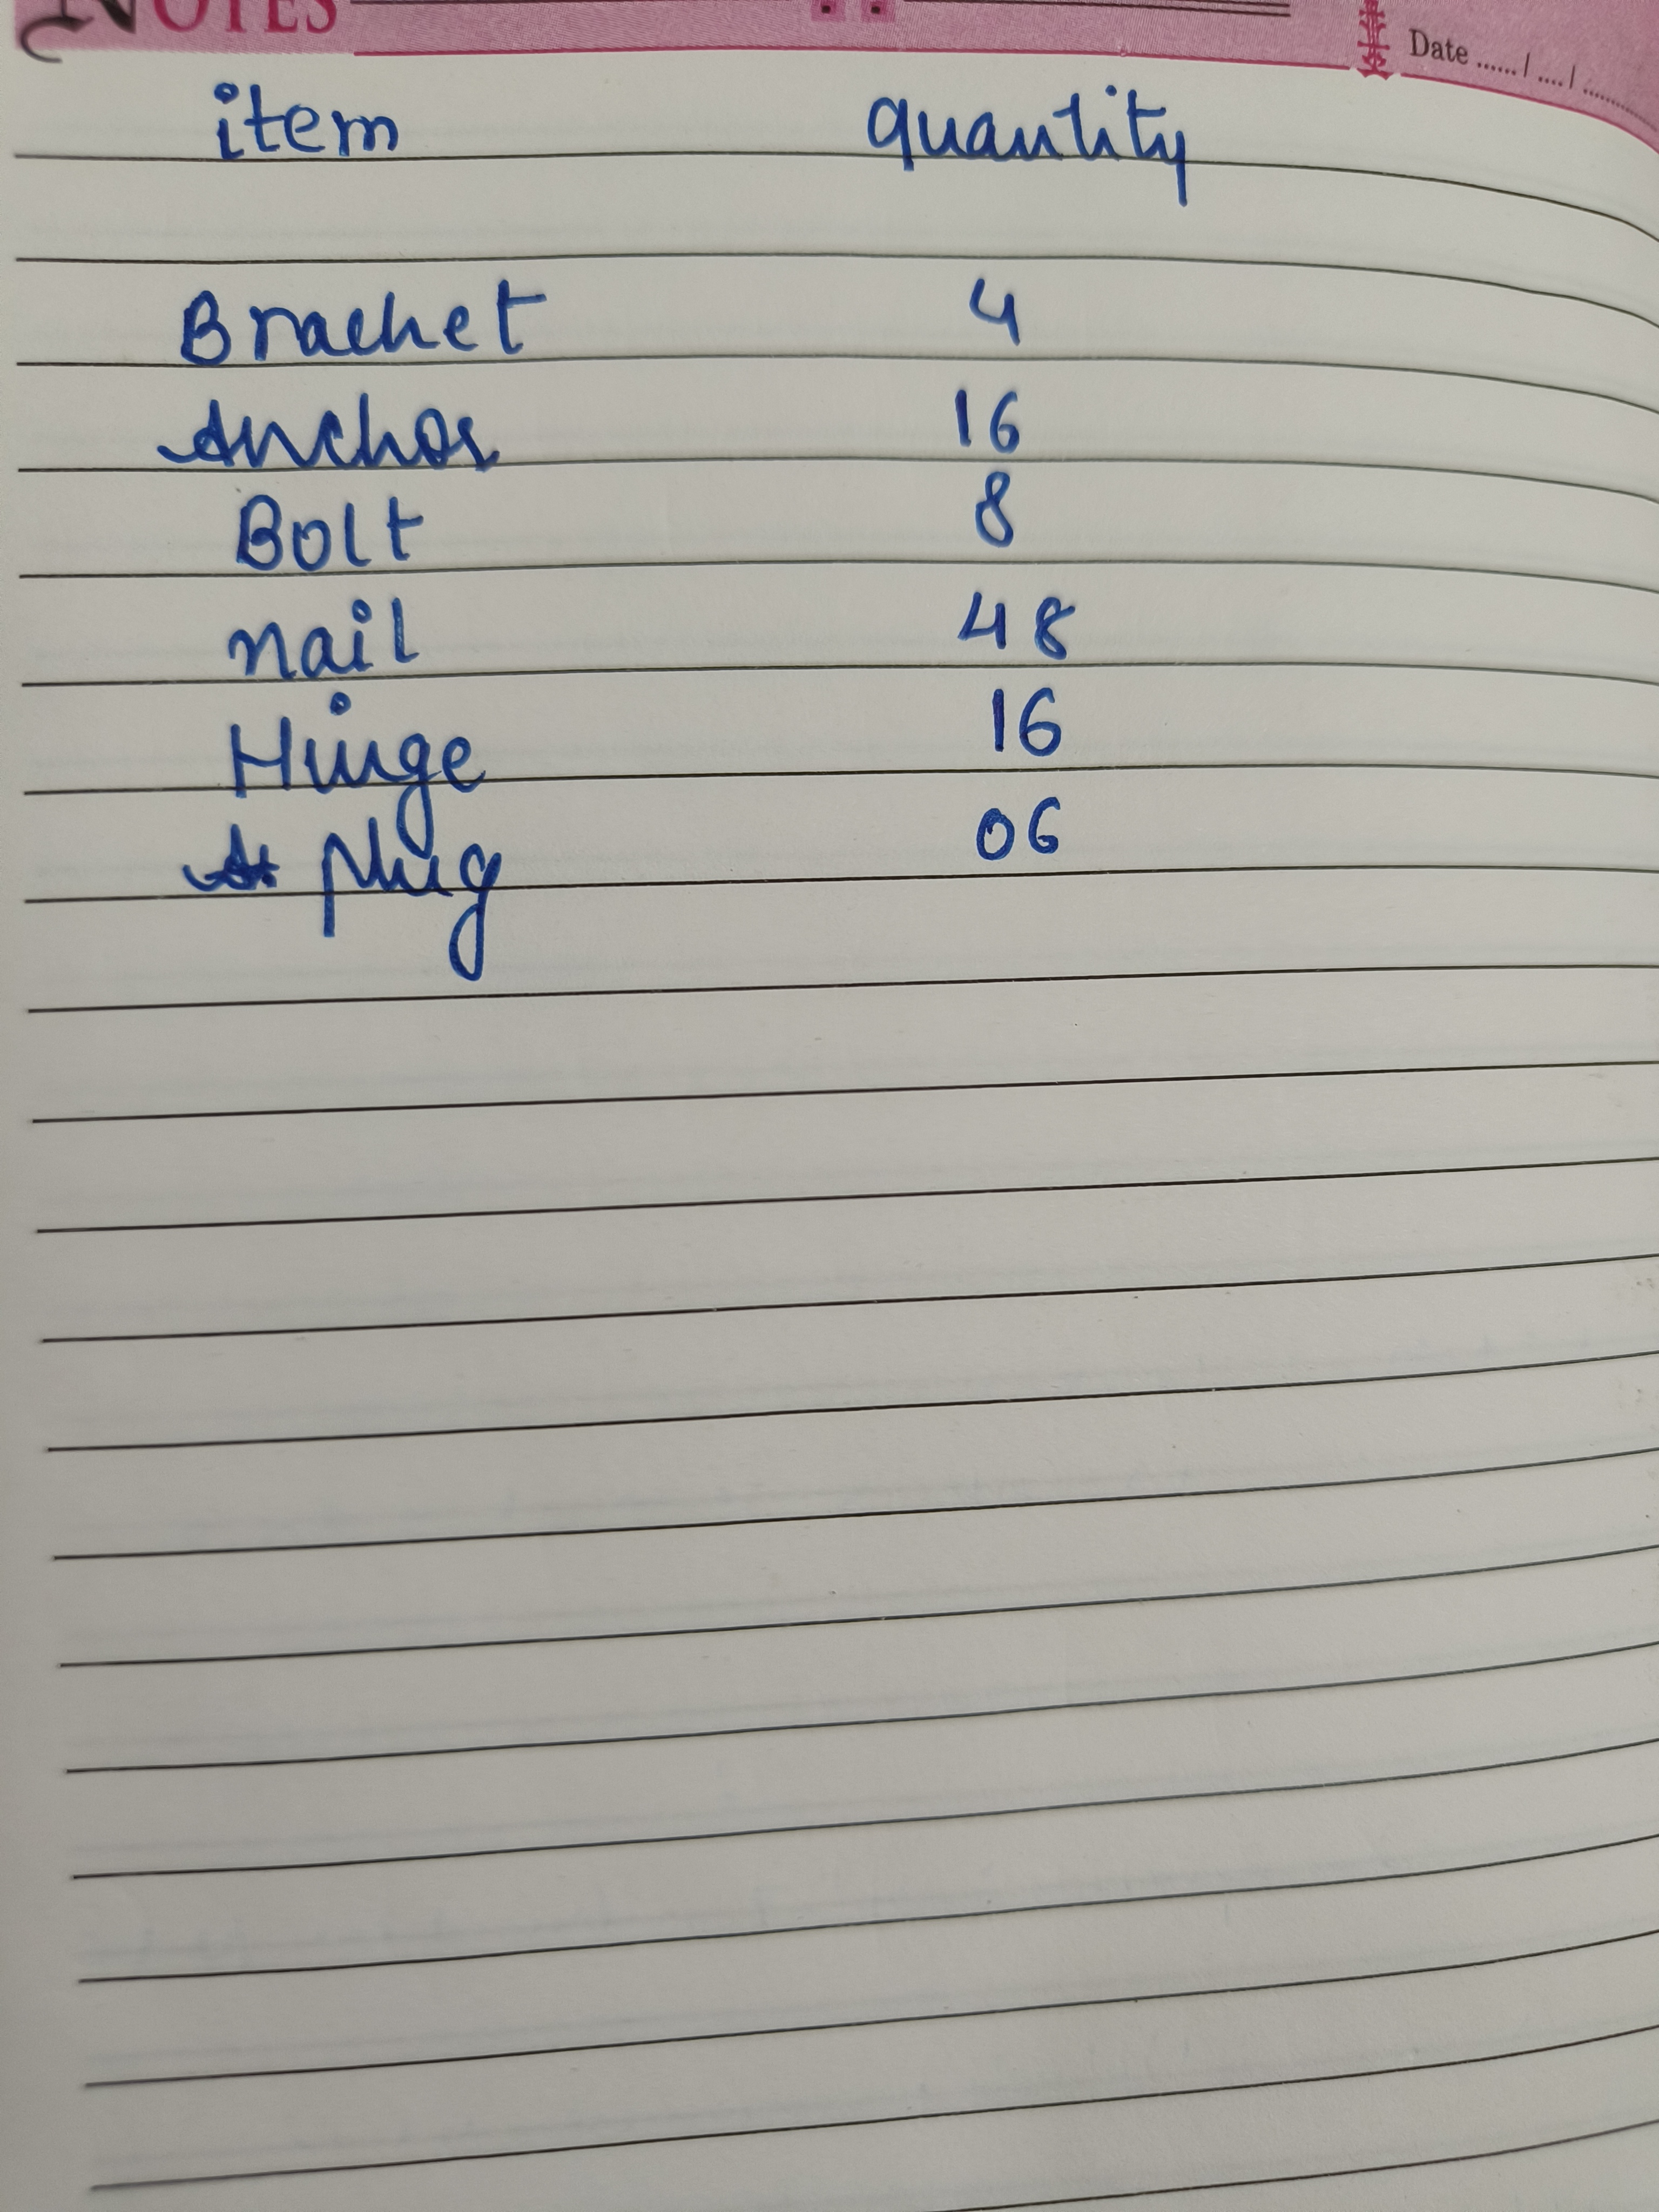 NOTES
Date ....../..../........
item quantity
Bracket 4
Anchor 16
Bolt 8
nail 48
Hinge 16
plug 06